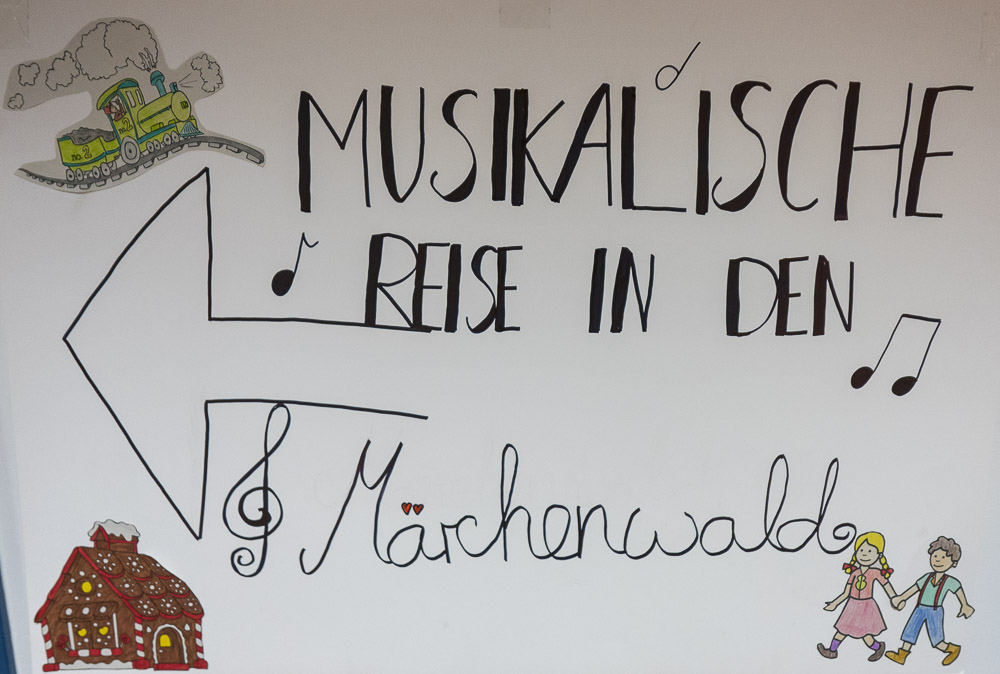 MUSIKALISCHE
REISE IN DEN
Märchenwald
no. 2
no. 2